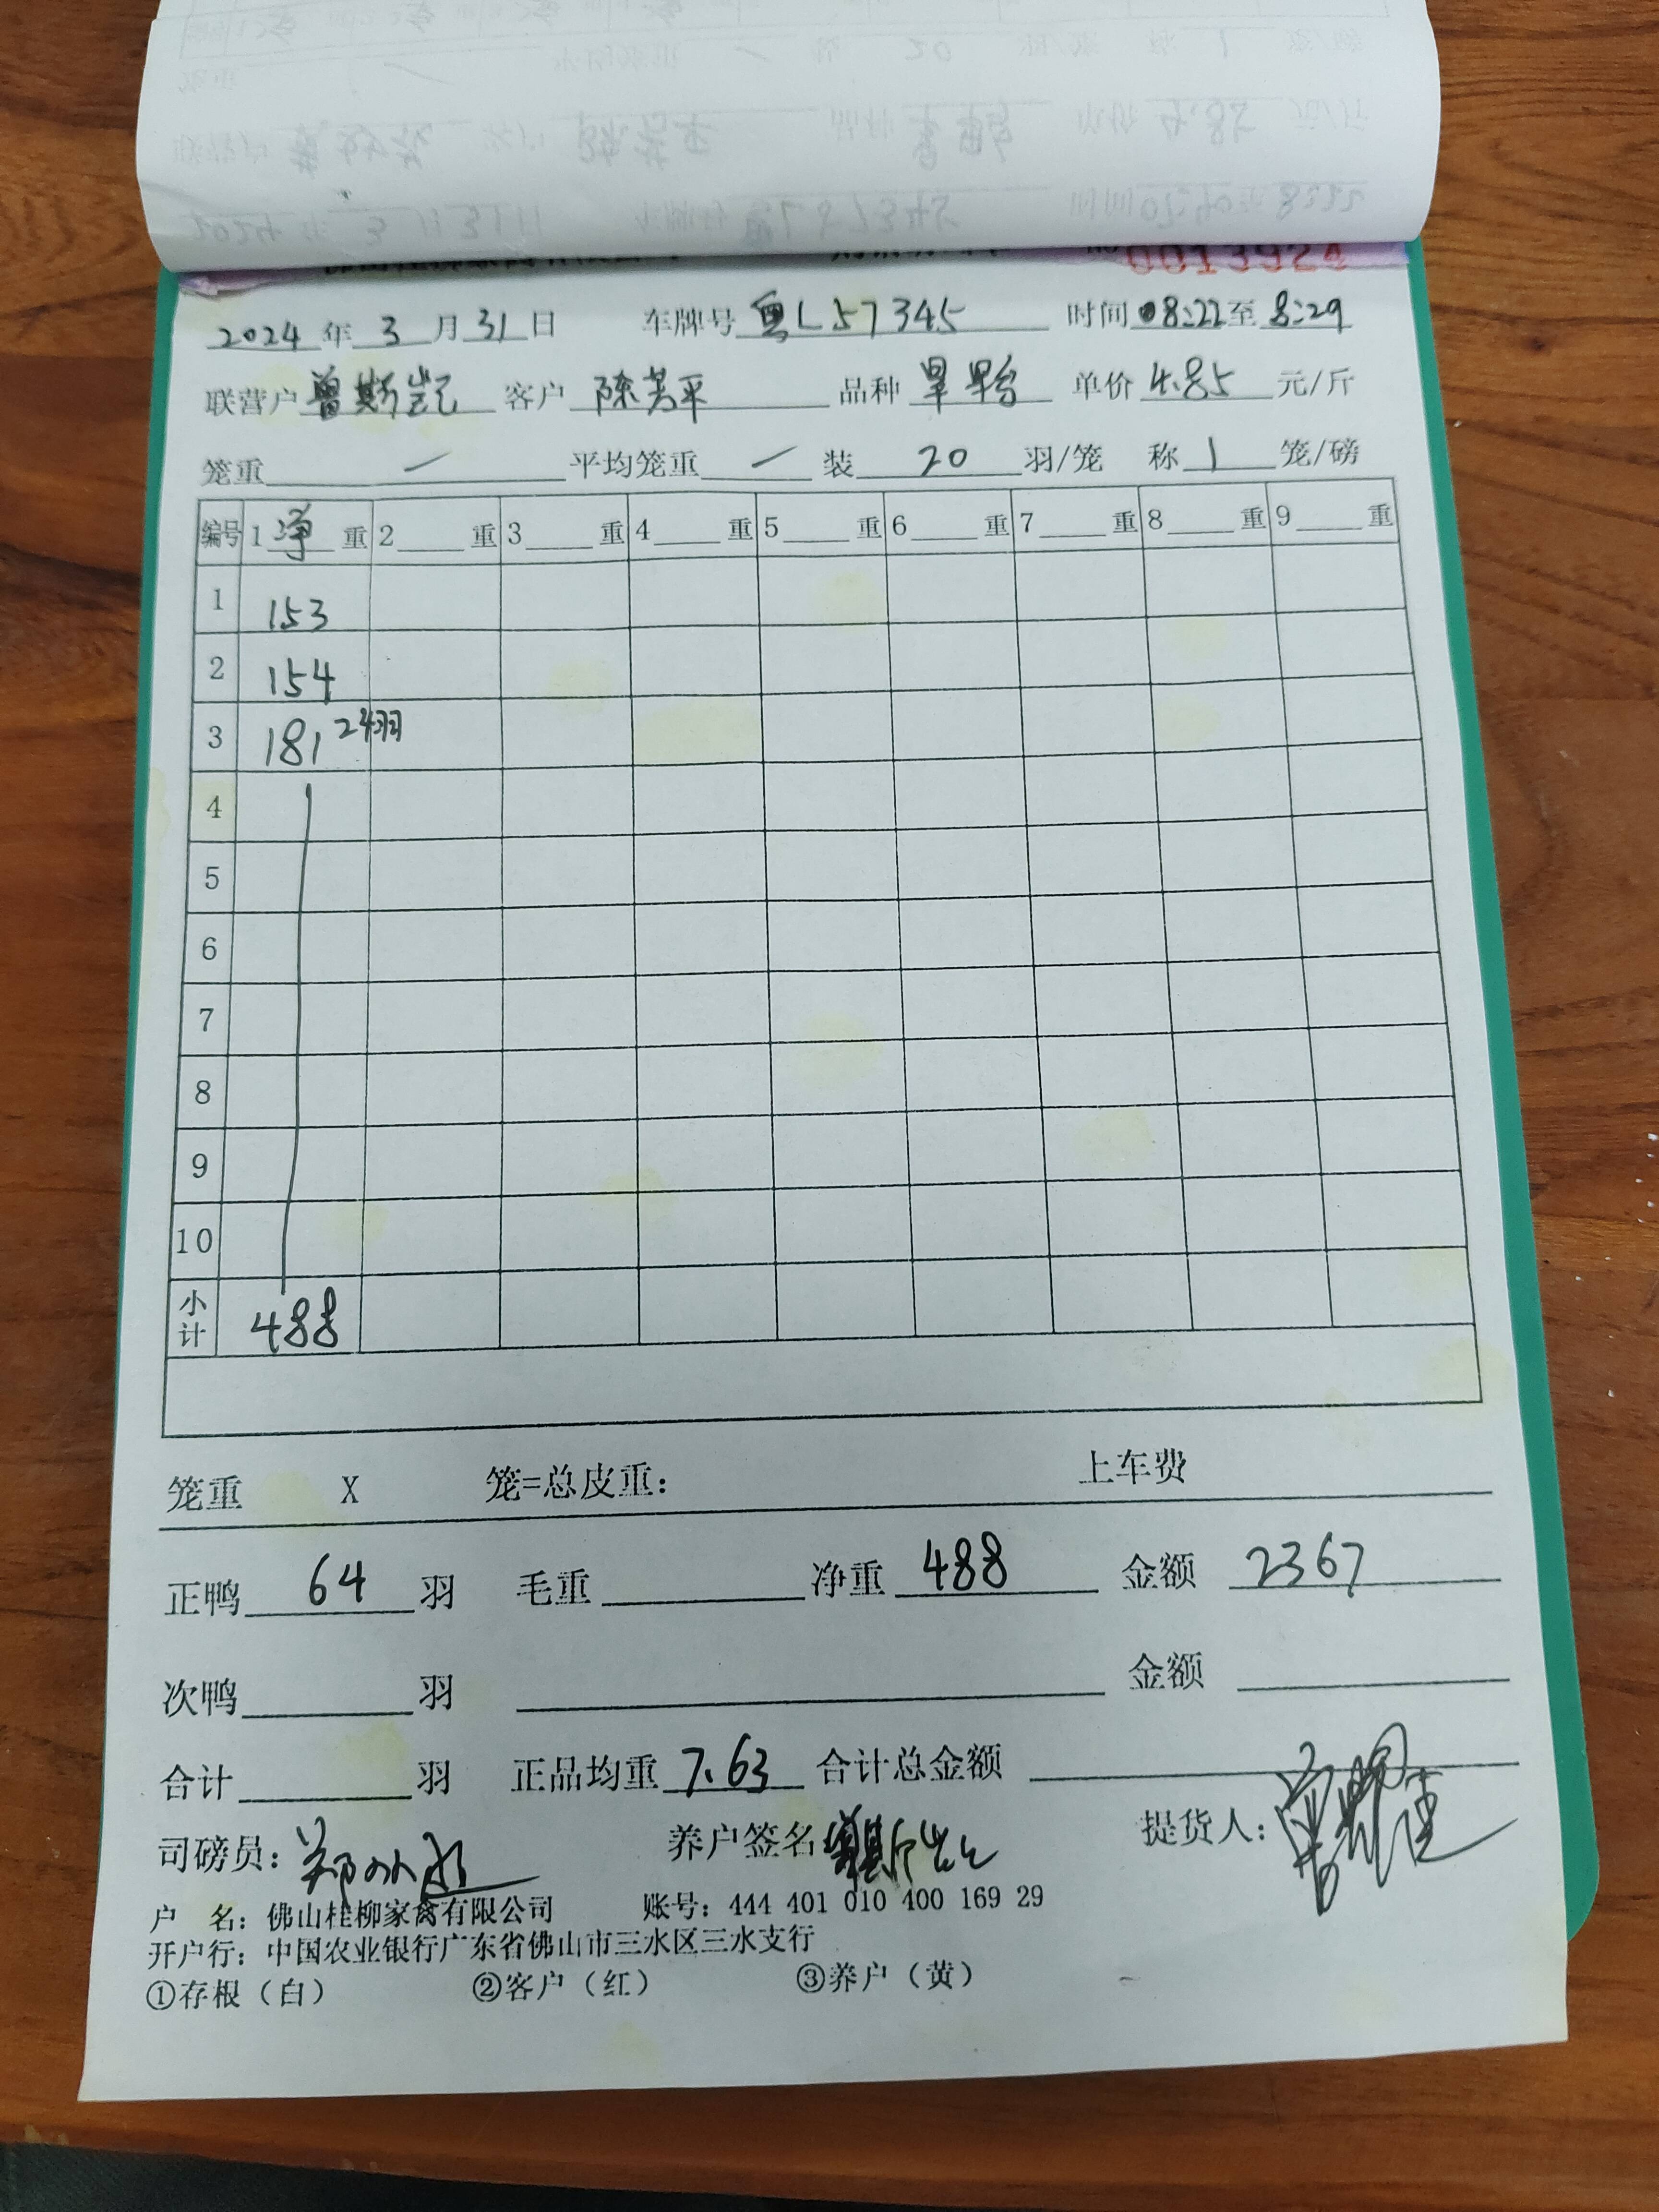 0013924
2024年3月31日 车牌号粤L57345 时间08:22至8:29
联营户曾斯岂 客户陈芳平 品种 单价4.85元/斤
笼重 — 平均笼重 — 装20羽/笼 称1笼/磅
编号 1净重 2重 3重 4重 5重 6重 7重 8重 9重
1 153
2 154
3 181 24羽
4
5
6
7
8
9
10
小计 488
笼重 X 笼=总皮重: 上车费
正鸭64羽 毛重 净重488 金额2367
次鸭 羽 金额
合计 羽 正品均重7.63 合计总金额
司磅员: 养户签名 提货人:
户 名: 佛山桂柳家禽有限公司 账号: 444 401 010 400 169 29
开户行: 中国农业银行广东省佛山市三水区三水支行
①存根(白) ②客户(红) ③养户(黄)